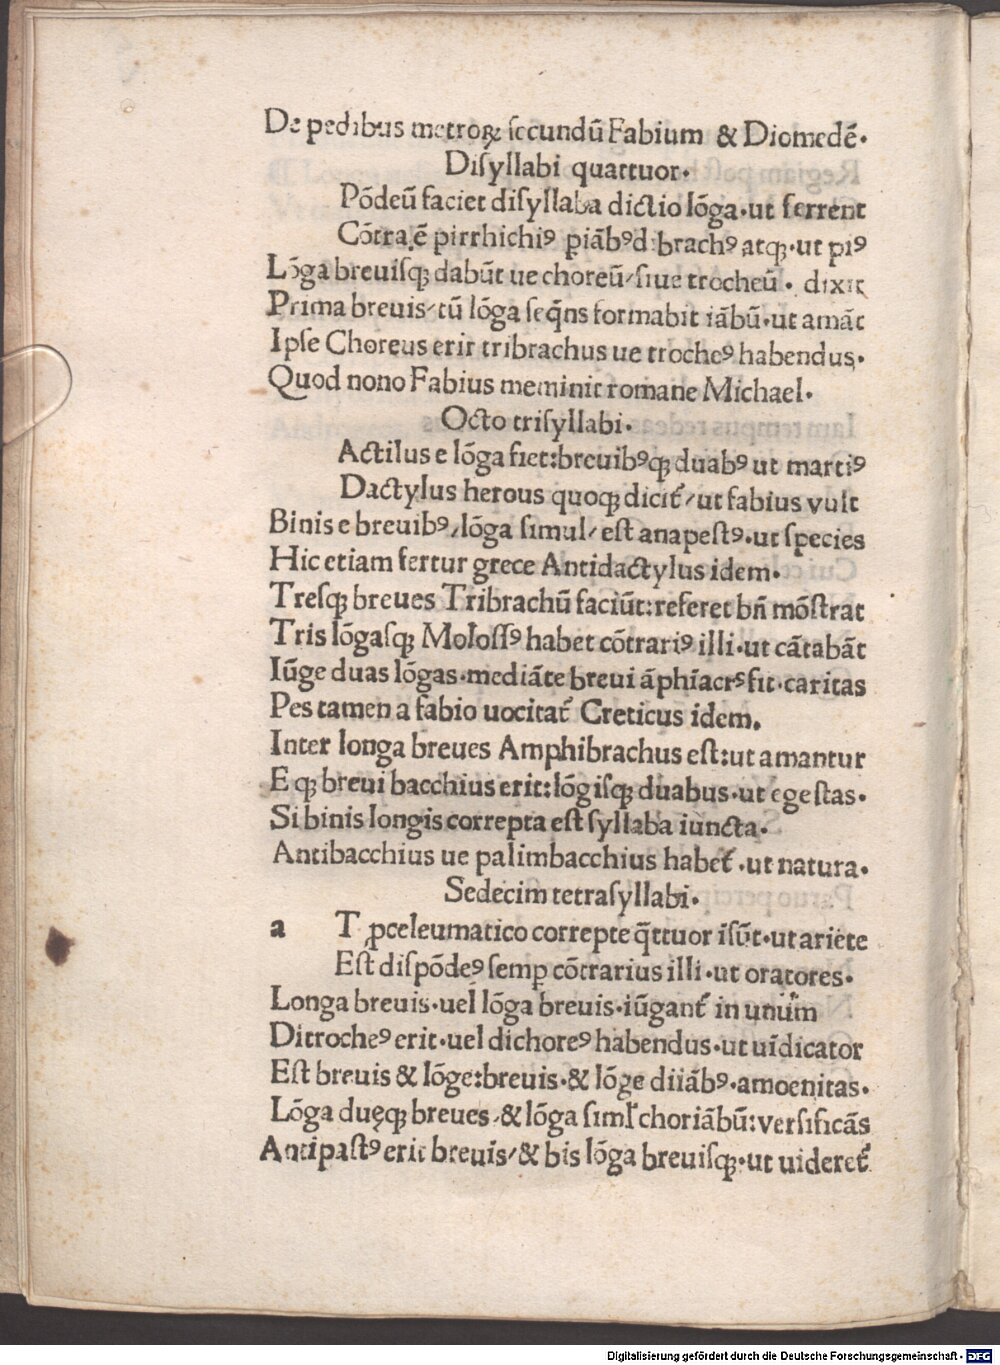 De pedibus metroꝝ ſecundū Fabium & Diomedē.
Diſyllabi quattuor.
Pōdeū faciet diſyllaba dictio lōga.ut ferrent
Cōtra,ē pirrhichiꝰ piābꝰ brachꝰ atqꝫ.ut piꝰ
Lōga breuiſqꝫ dabūt ue choreū/ſiue trocheū. dixit
Prima breuis/tū lōga ſeq̄ns formabit iābū.ut amāt
Ipſe Choreus erit tribrachus ue trocheꝰ habendus.
Quod nono Fabius meminit romane Michael.
Octo triſyllabi.
Actilus e lōga fiet:breuibꝰqꝫ duabꝰ ut martiꝰ
Dactylus herous quoqꝫ dicit᷑/ut fabius vult
Binis e breuibꝰ/lōga ſimul/eſt anapeſtꝰ.ut ſpecies
Hic etiam fertur grece Antidactylus idem.
Treſqꝫ breues Tribrachū faciūt:referet bn̄ mōſtrat
Tris lōgaſqꝫ Moloſſꝰ habet cōtrariꝰ illi.ut cātabāt
Iūge duas lōgas.mediāte breui āphīacrꝰ fit.caritas
Pes tamen a fabio uocitat᷑ Creticus idem.
Inter longa breues Amphibrachus eſt:ut amantur
E qꝫ breui bacchius erit:lōgiſqꝫ duabus.ut egeſtas.
Si binis longis correpta eſt ſyllaba iuncta.
Antibacchius ue palimbacchius habet᷑.ut natura.
Sedecim tetraſyllabi.
a T ꝓceleumatico correpte q̄ttuor īſūt.ut ariete
Eſt diſpōdeꝰ ſemꝑ cōtrarius illi.ut oratores.
Longa breuis.uel lōga breuis.iūgant᷑ in unum
Ditrocheꝰ erit.uel dichoreꝰ habendus.ut uīdicator
Eſt breuis & lōge:breuis.& lōge diiābꝰ.amoenitas.
Lōga duęqꝫ breues/& lōga ſiml̄ choriābū:verſificās
Antipaſtꝰ erit breuis/& bis lōga breuiſqꝫ.ut uideret᷑
Digitalisierung gefördert durch die Deutsche Forschungsgemeinschaft - DFG